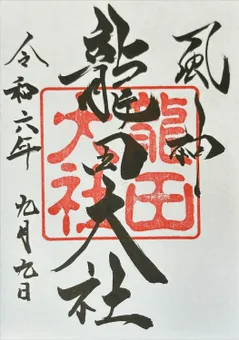 風神
龍田大社
龍田
大社
令和六年
九月九日